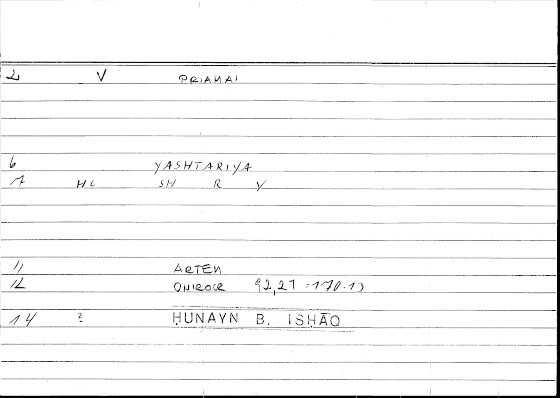 2 V PRIAMAI
6 YASHTARIYA
7 HL SH R Y
11 ARTEM
12 ONIROCR 92,21 = 170.13
14 ? ḤUNAYN B. ISḤĀQ